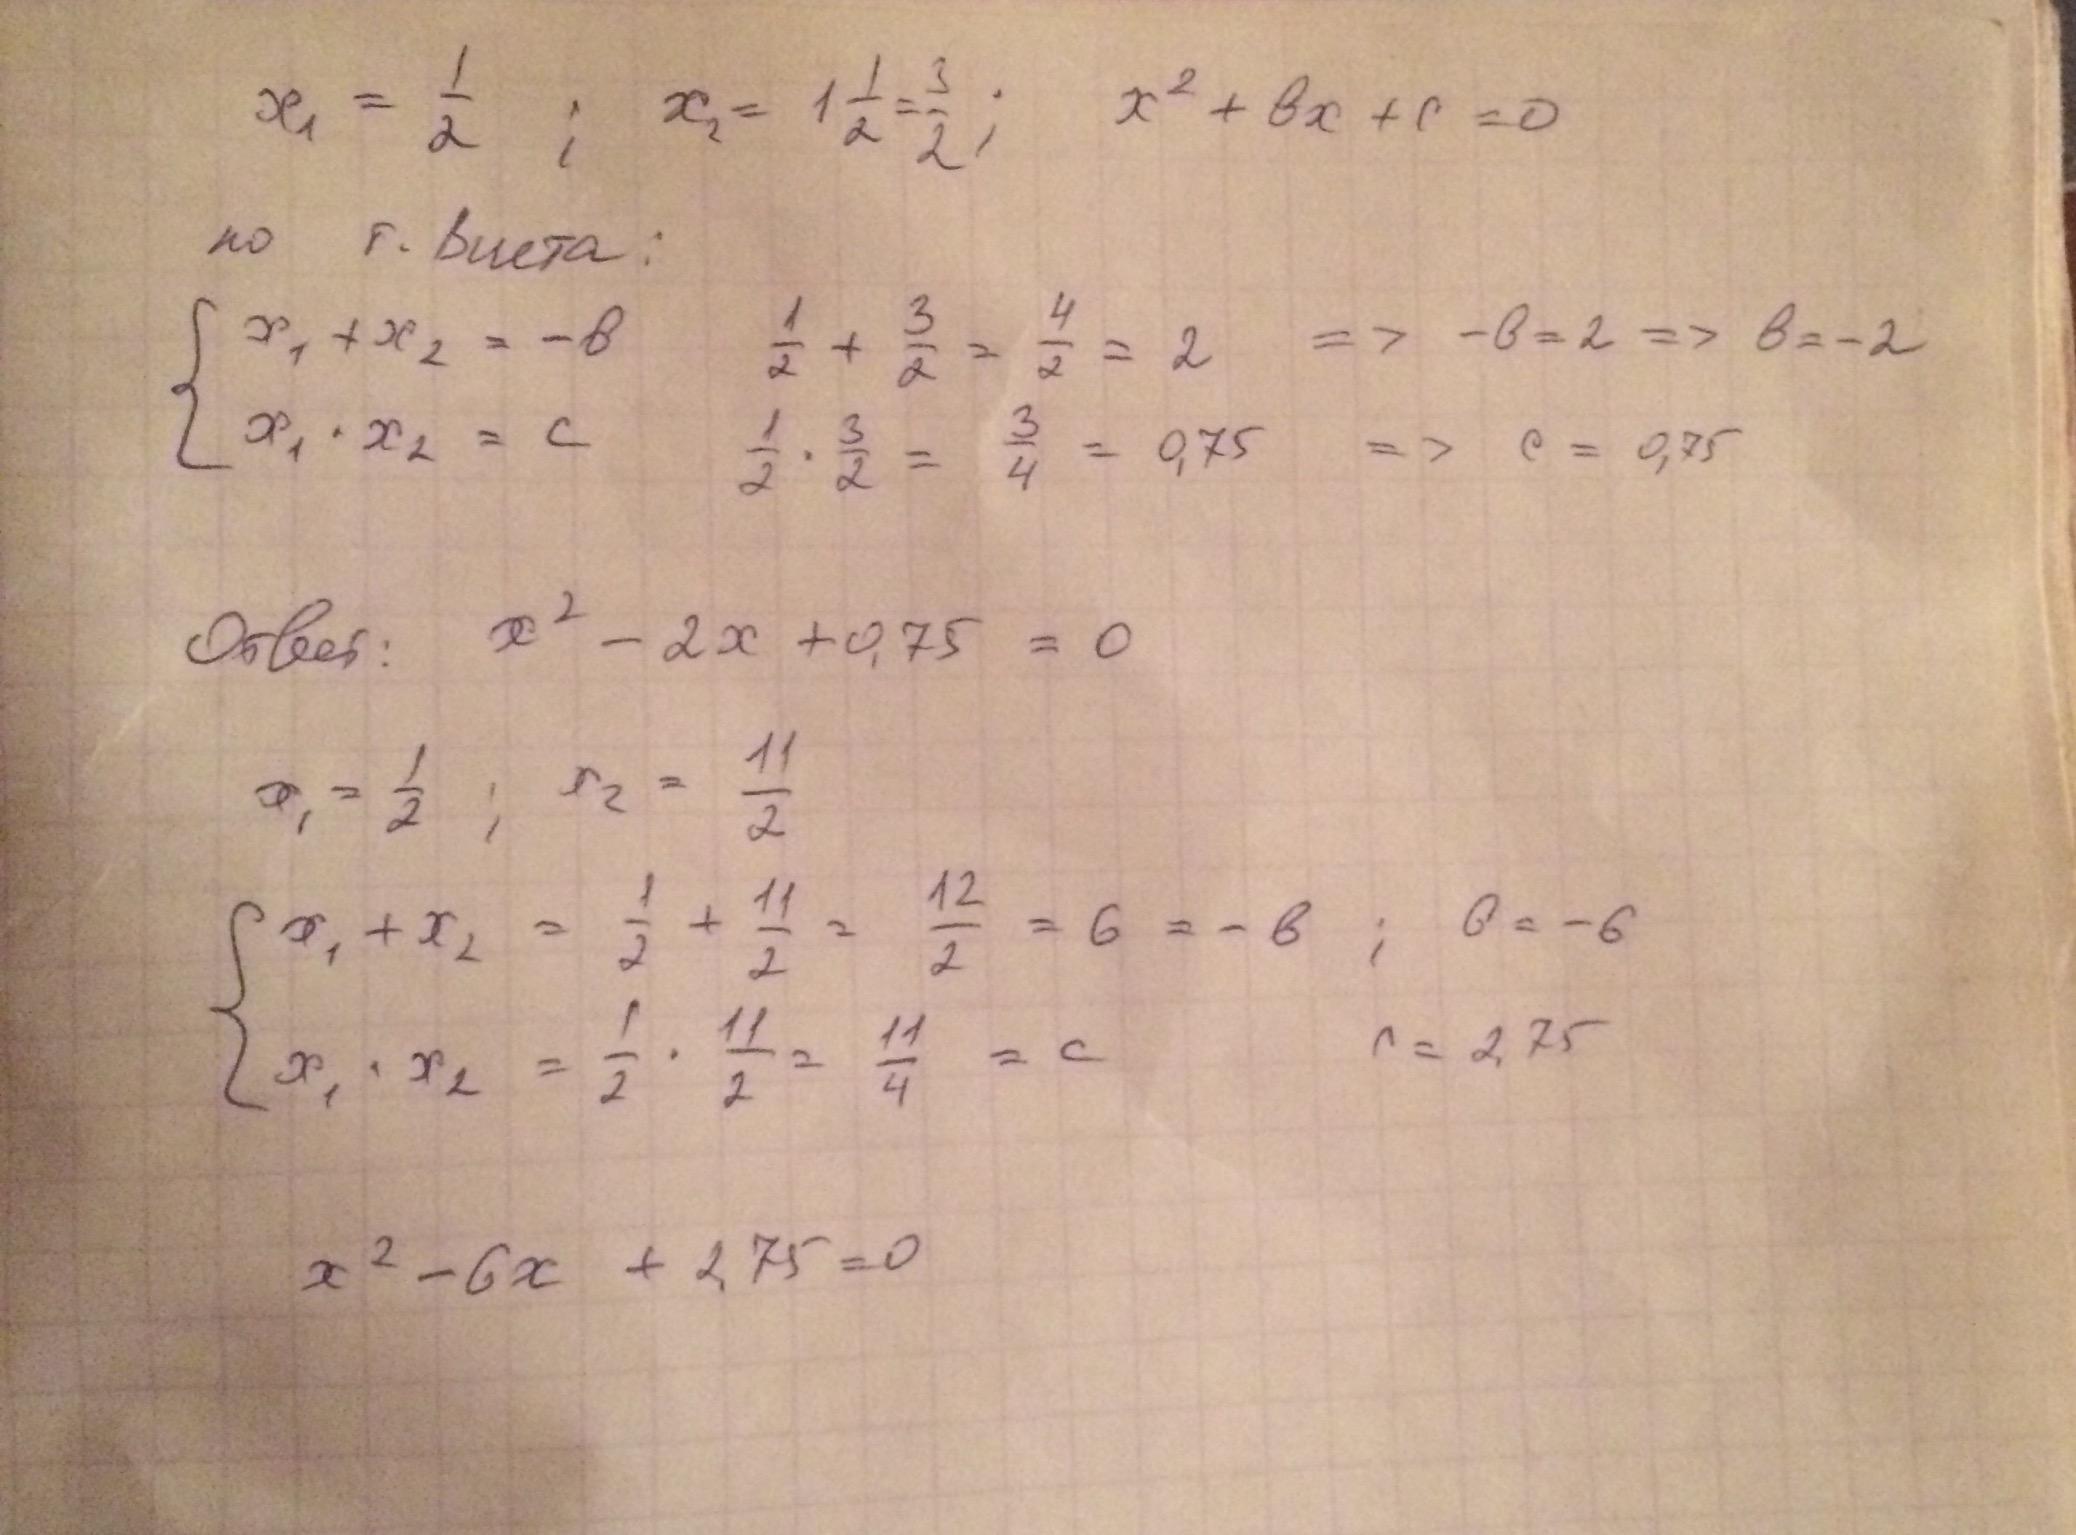 x₁ = 1/2 ; x₂ = 1 1/2 = 3/2 ; x² + вx + c = 0
по т. Виета:
{ x₁ + x₂ = -в 1/2 + 3/2 = 4/2 = 2 => -в = 2 => в = -2
x₁ · x₂ = c 1/2 · 3/2 = 3/4 = 0,75 => c = 0,75
Ответ: x² - 2x + 0,75 = 0
x₁ = 1/2 ; x₂ = 11/2
{ x₁ + x₂ = 1/2 + 11/2 = 12/2 = 6 = -в ; в = -6
x₁ · x₂ = 1/2 · 11/2 = 11/4 = c c = 2,75
x² - 6x + 2,75 = 0